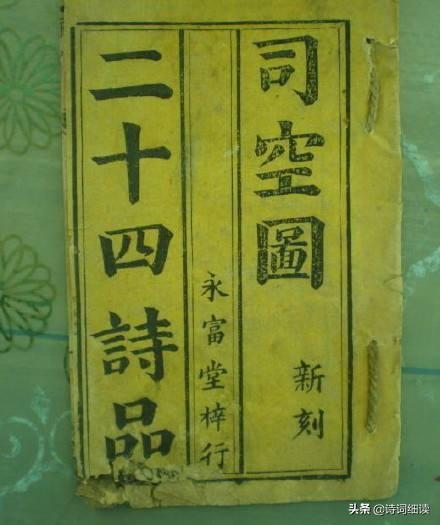 司空圖
新刻
永富堂梓行
二十四詩品
头条 @诗词细读